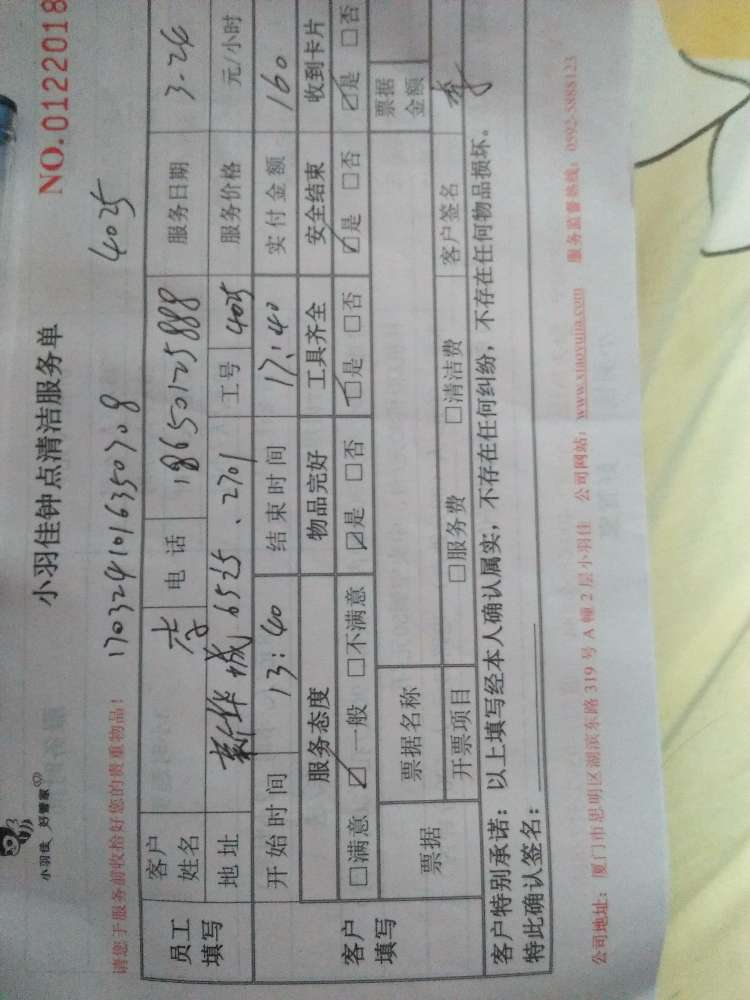 小羽佳 好管家
小羽佳钟点清洁服务单
NO.0122018
请您于服务前收拾好您的贵重物品!
1703241016350708
4025
员工填写
客户姓名 李 电话 18650125888 服务日期 3.26
地址 新华城 6525、2701 工号 4025 服务价格 元/小时
开始时间 13:40 结束时间 17:40 实付金额 160
客户填写
服务态度 物品完好 工具齐全 安全结束 收到卡片
□满意 ☑一般 □不满意 ☑是 □否 ☑是 □否 ☑是 □否 ☑是 □否
票据 票据名称 票据金额
开票项目 □服务费 □清洁费 客户签名 李
客户特别承诺:以上填写经本人确认属实,不存在任何纠纷,不存在任何物品损坏。
特此确认签名:
公司地址:厦门市思明区湖滨东路319号A幢2层小羽佳 公司网站:www.xiaoyujia.com 服务监督热线:0592-5888123